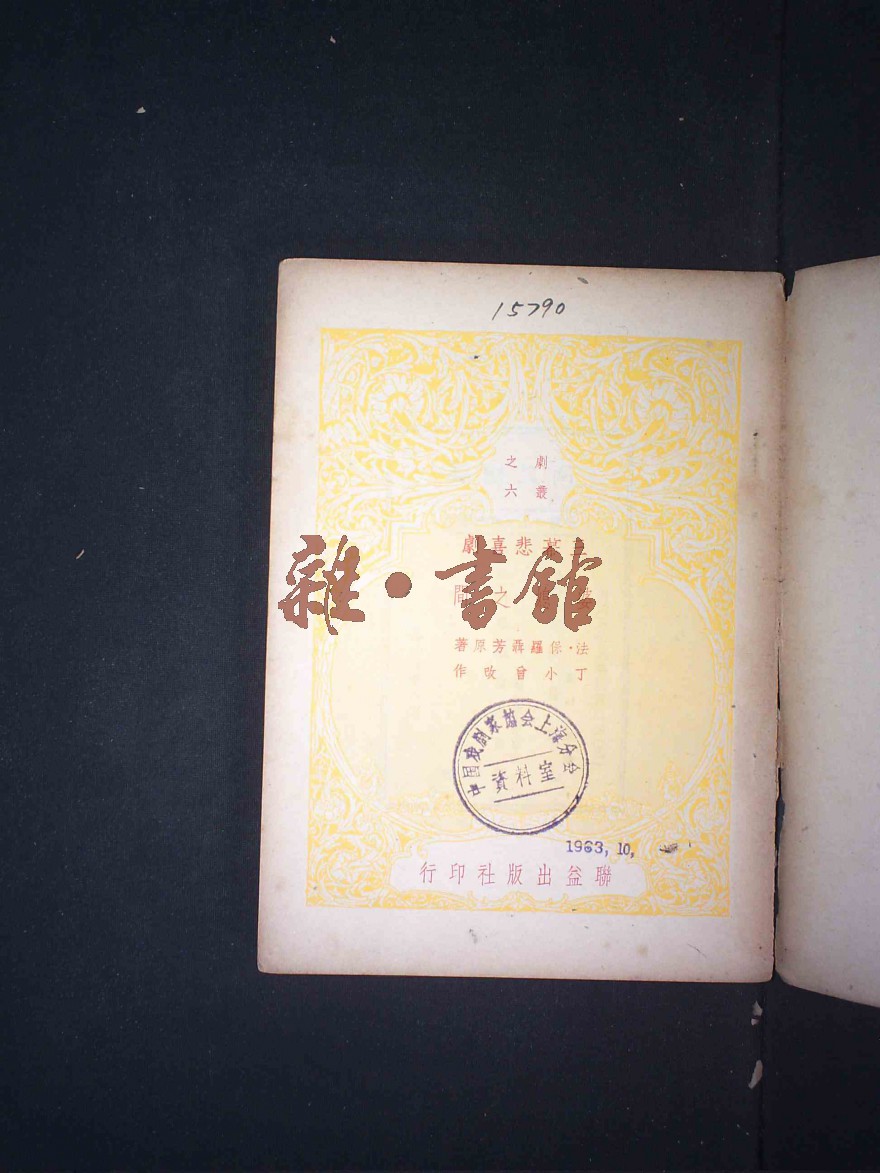 15790
劇叢
之六
幕悲喜劇
之間
雜·書館
法·保羅芳原著
丁小曾改作
中国戏剧家協会上海分会
資料室
1963, 10,
聯益出版社印行